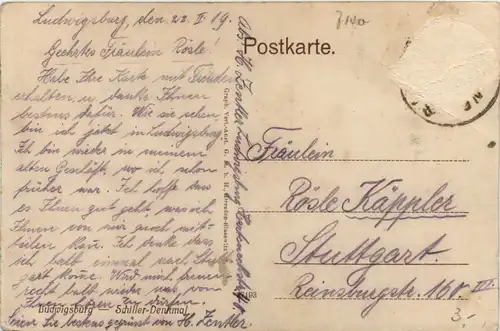 Ludwigsburg, den 22. II. 19.
Geehrtes Fräulein Rösle!
Habe Ihre Karte mit Freuden
erhalten, u. danke Ihnen
bestens dafür. Wie Sie sehen,
bin ich jetzt in Ludwigsburg.
Ich bin wieder in meinem
alten Geschäft, wo ich schon
früher war. Ich hoffe daß
es Ihnen gut geht, was ich
Ihnen von mir auch mit-
teilen kann. Ich denke daß
ich bald einmal nach Stutt-
gart komme. Würd mich
recht bald wieder was von
Ihnen hören zu dürfen.
Seien Sie bestens gegrüßt von H. Zentler.
Ludwigsburg — Schiller-Denkmal
Abs. H. Zentler Ludwigsburg
Graph. Verl.-Anst. G. m. b. H., Breslau
193
7140
Postkarte.
Fräulein
Rösle Käppler
Stuttgart.
Reinsburgstr. 160 III.
3.-